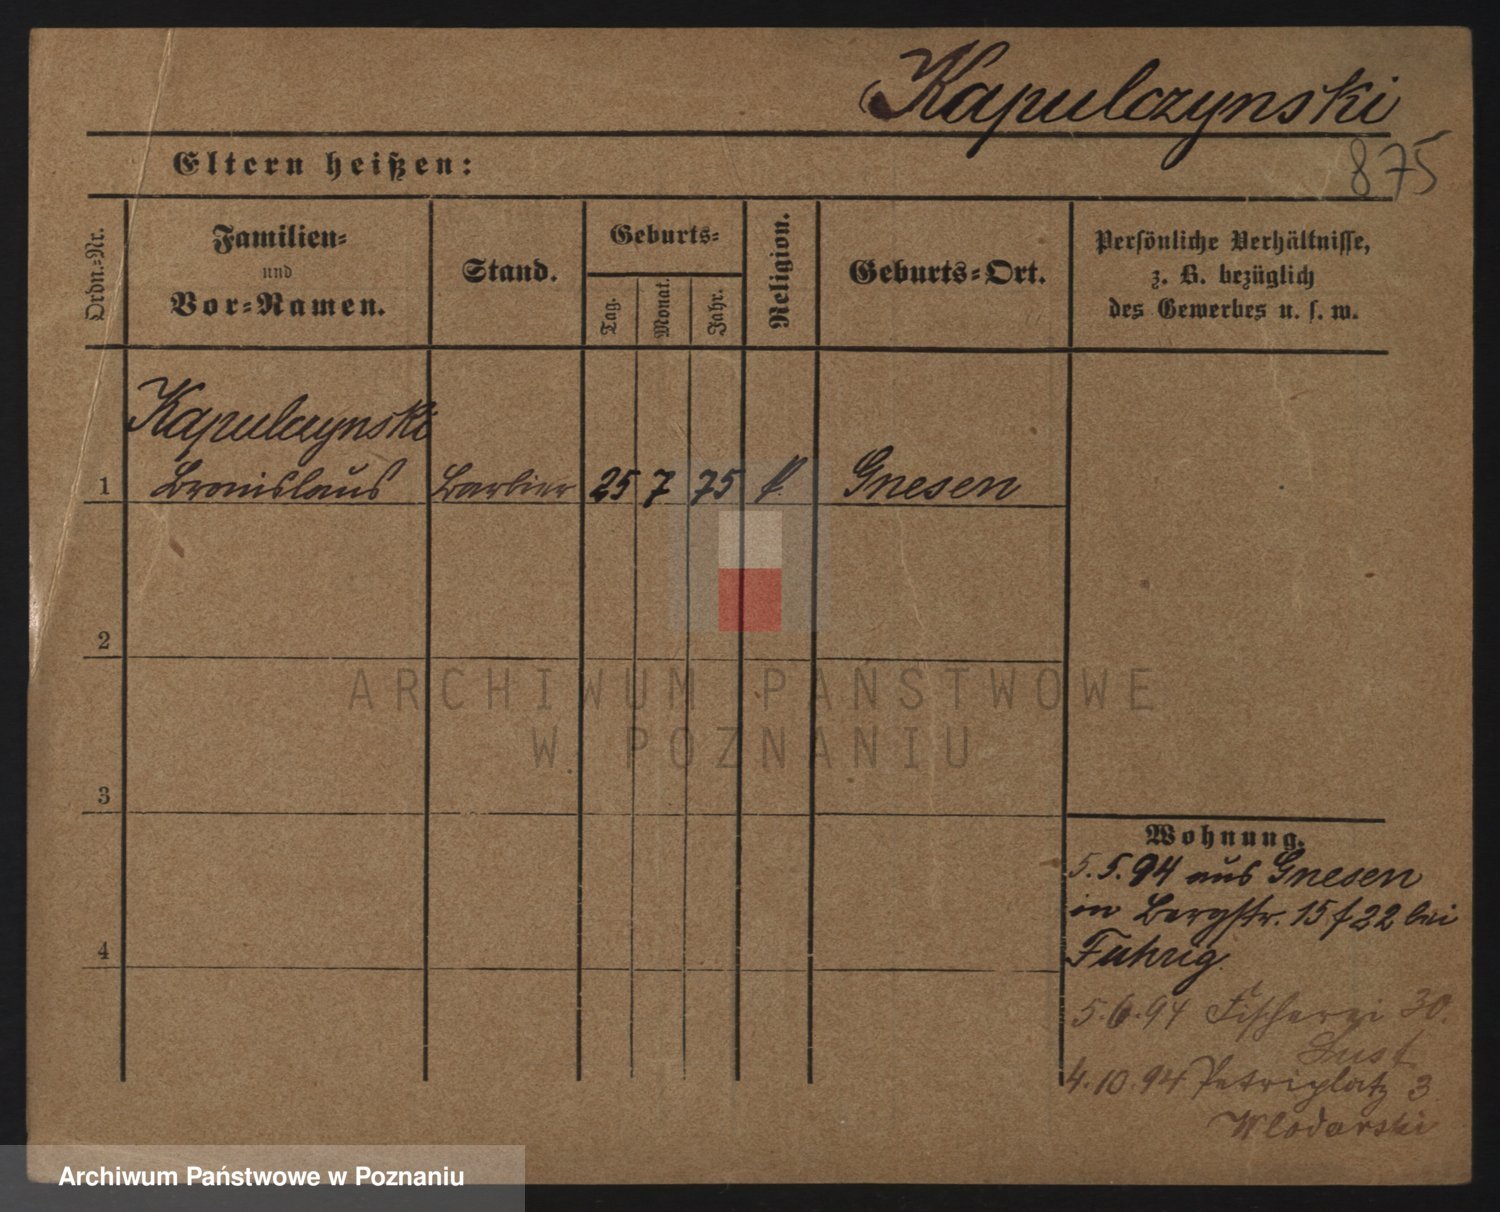 Kapulczynski
875
Eltern heißen:
Ordn.-Nr.
Familien-
und
Vor-Namen.
Stand.
Geburts-
Tag.
Monat.
Jahr.
Religion.
Geburts-Ort.
Persönliche Verhältnisse,
z. B. bezüglich
des Gewerbes u. s. w.
Kapulczynski
1 Bronislaus Barbier 25 7 75 k. Gnesen
2
ARCHIWUM PAŃSTWOWE
W POZNANIU
3
Wohnung.
5.5.94 aus Gnesen
in Bergstr. 15 f 22 bei
4
Fahrig
5.6.94 Fischerei 30.
Lust
4.10.94 Petriplatz 3
Wlodarski
Archiwum Państwowe w Poznaniu